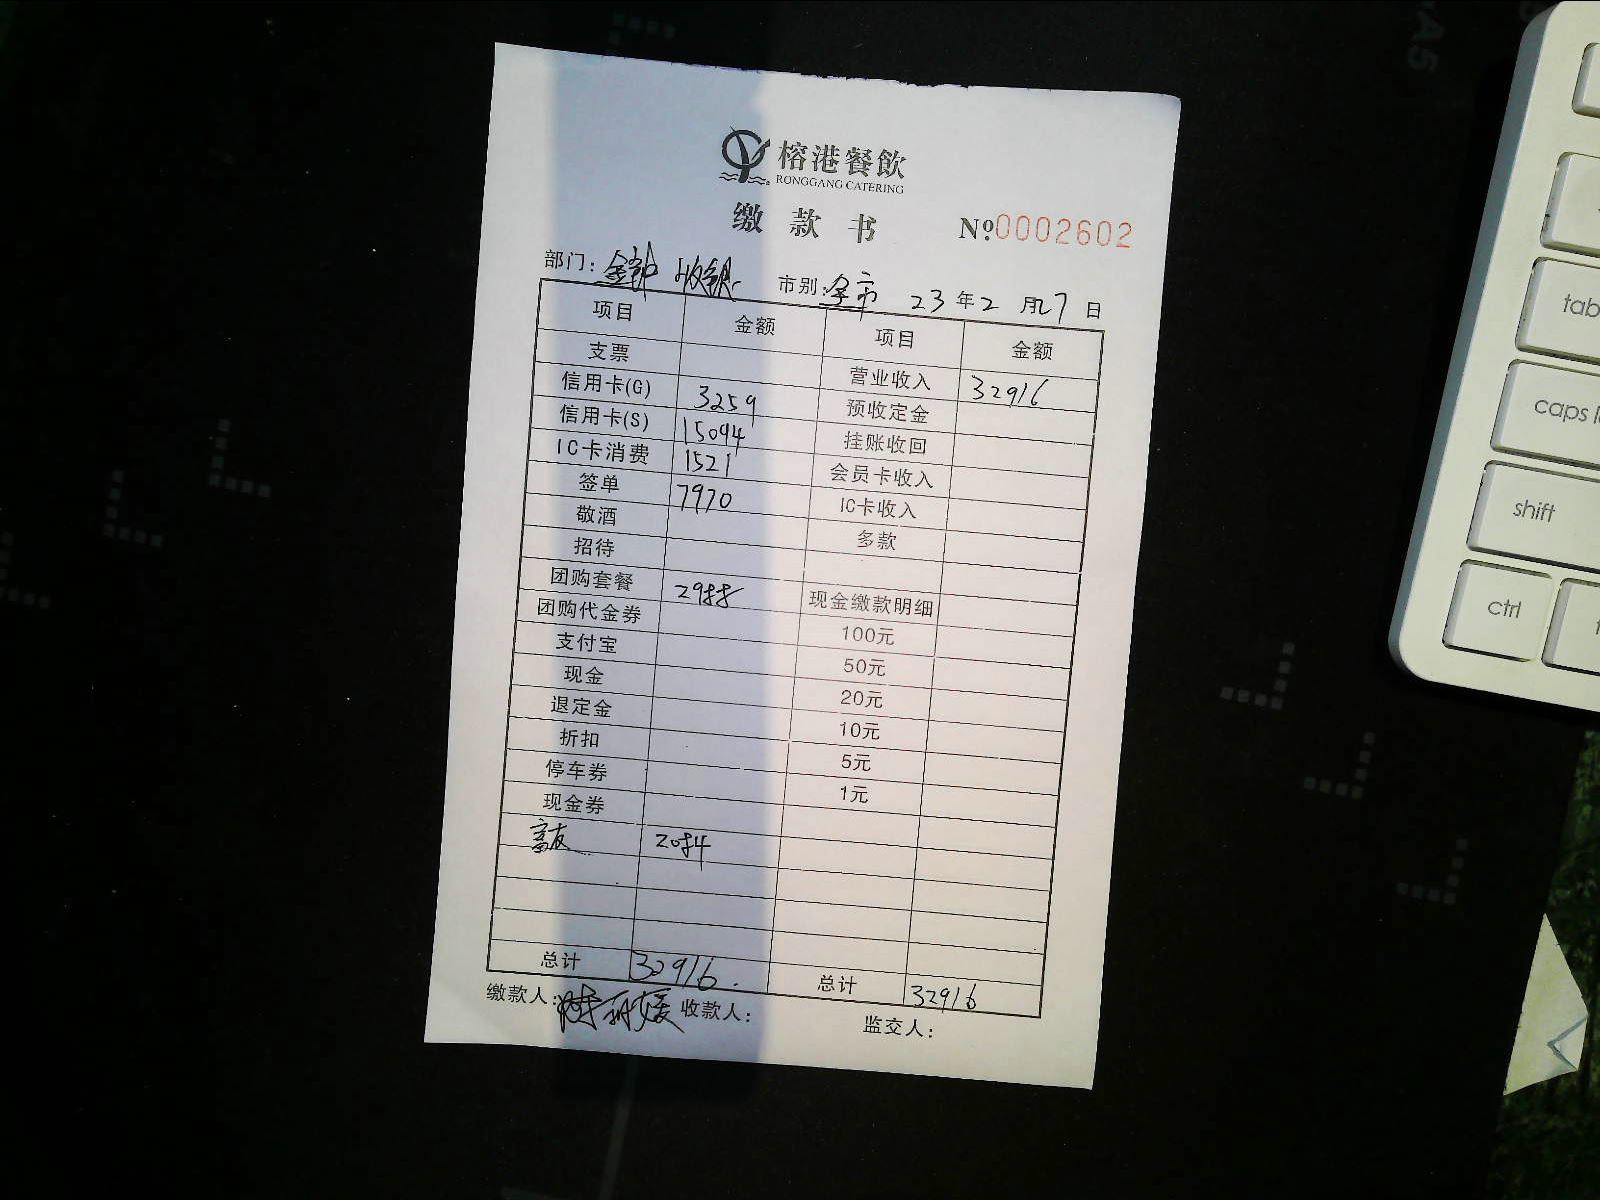 榕港餐飲
RONGGANG CATERING
缴款书 №0002602
部门：金钟 收银 市别：全市 23年2月27日
项目 金额 项目 金额
支票 营业收入 32916
信用卡(G) 3259 预收定金
信用卡(S) 15094 挂账收回
IC卡消费 1521 会员卡收入
签单 7970 IC卡收入
敬酒 多款
招待
团购套餐 2988 现金缴款明细
团购代金券 100元
支付宝 50元
现金 20元
退定金 10元
折扣 5元
停车券 1元
现金券
2084
总计 32916. 总计 32916
缴款人： 收款人： 监交人：
A5
tab
caps l
shift
ctrl